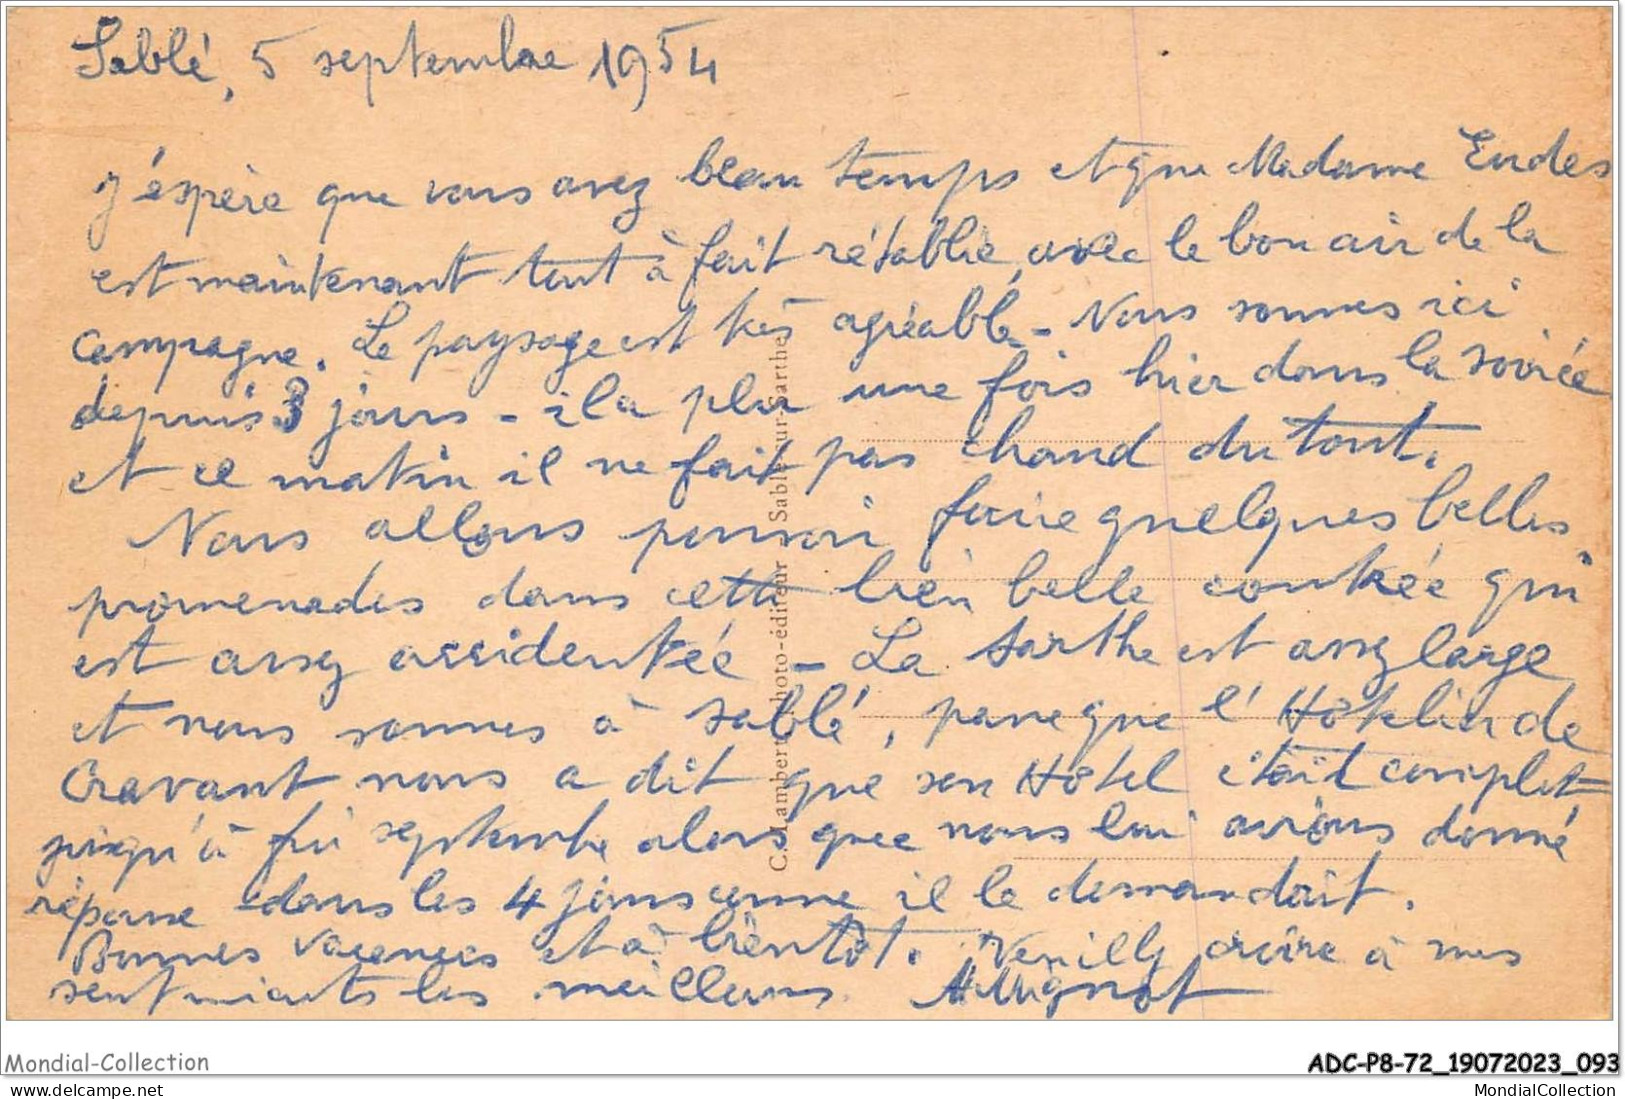 Sablé, 5 septembre 1954
J'espère que vous avez beau temps et que Madame Eudes
est maintenant tout à fait rétablie, avec le bon air de la
campagne. Le paysage est très agréable - Nous sommes ici
depuis 3 jours - il a plu une fois hier dans la soirée
et ce matin il ne fait pas chaud du tout.
Nous allons pouvoir faire quelques belles
promenades dans cette bien belle contrée qui
est assez accidentée - La Sarthe est assez large
et nous sommes à Sablé, parce que l'Hôtelier de
Cravant nous a dit que son Hôtel était complet
jusqu'à fin septembre alors que nous lui avions donné
réponse dans les 4 jours comme il le demandait.
Bonnes vacances et à bientôt. Veuillez croire à mes
sentiments les meilleurs. Mignot
C. Lambert, photo-éditeur Sablé-sur-Sarthe
Mondial-Collection
ADC-P8-72_19072023_093
delcampe.net
MondialCollection